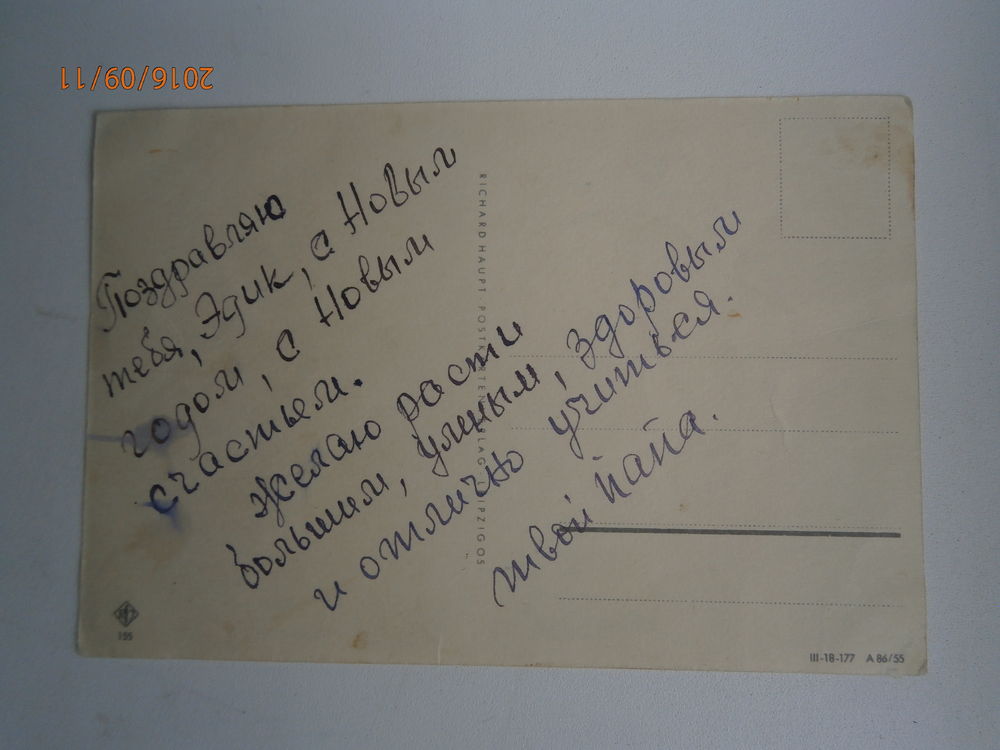 2016/09/11
Поздравляю
тебя, Эдик, с Новым
годом, с Новым
счастьем.
Желаю расти
большим, умным, здоровым
и отлично учиться.
твой папа.
RICHARD HAUPT · POSTKARTENVERLAG LEIPZIG O5
155
III-18-177 A 86/55